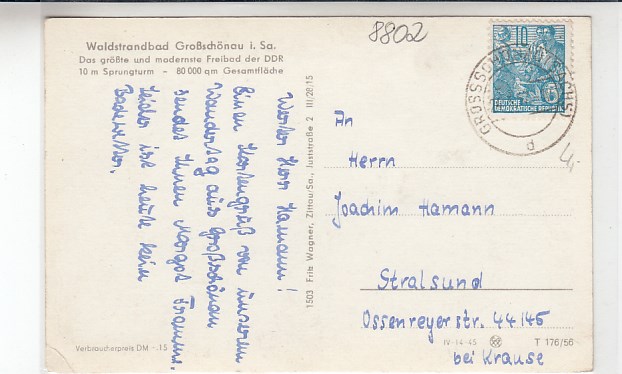 8802
Waldstrandbad Großschönau i. Sa.
Das größte und modernste Freibad der DDR
10 m Sprungturm – 80 000 qm Gesamtfläche
Werter Herr Hamann!
Einen Kartengruß von unserem
Wandertag aus Großschönau
sendet Ihnen Margot
Leider ist heute kein
Badewetter.
Verbraucherpreis DM –.15
1503 Fritz Wagner, Zittau/Sa., Juststraße 2 III/28/15
10
DEUTSCHE
DEMOKRATISCHE REPUBLIK
GROSSSCHÖNAU (SACHS)
d
4,
An
Herrn
Joachim Hamann
Stralsund
Ossenreyerstr. 44/45
bei Krause
IV-14-45
T 176/56